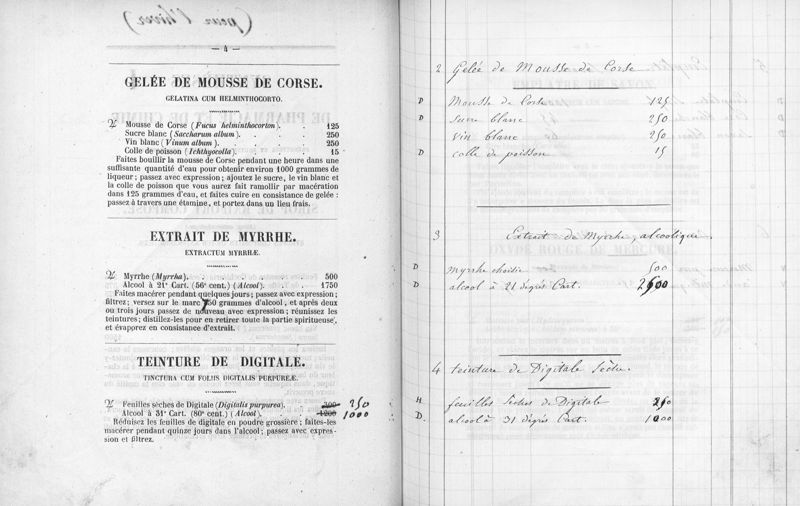 (pour l'hiver)
— 4 —
GELÉE DE MOUSSE DE CORSE.
GELATINA CUM HELMINTHOCORTO.
♃ Mousse de Corse (Fucus helminthocorton). . 125
Sucre blanc (Saccharum album). . . . 250
Vin blanc (Vinum album). . . . 250
Colle de poisson (Ichthyocolla). . . . 15
Faites bouillir la mousse de Corse pendant une heure dans une
suffisante quantité d'eau pour obtenir environ 1000 grammes de
liqueur; passez avec expression; ajoutez le sucre, le vin blanc et
la colle de poisson que vous aurez fait ramollir par macération
dans 125 grammes d'eau, et faites cuire en consistance de gelée:
passez à travers une étamine, et portez dans un lieu frais.
EXTRAIT DE MYRRHE.
EXTRACTUM MYRRHÆ.
♃ Myrrhe (Myrrha). . . . . . . 500
Alcool à 21º Cart. (56º cent.) (Alcool). . . 1750
Faites macérer pendant quelques jours; passez avec expression;
filtrez; versez sur le marc 750 grammes d'alcool, et après deux
ou trois jours passez de nouveau avec expression; réunissez les
teintures; distillez-les pour en retirer toute la partie spiritueuse,
et évaporez en consistance d'extrait.
TEINTURE DE DIGITALE.
TINCTURA CUM FOLIIS DIGITALIS PURPUREÆ.
♃ Feuilles sèches de Digitale (Digitalis purpurea). 300 250
Alcool à 31º Cart. (80º cent.) (Alcool). . . 1200 1000
Réduisez les feuilles de digitale en poudre grossière; faites-les
macérer pendant quinze jours dans l'alcool; passez avec expres-
sion et filtrez.
2 Gelée de Mousse de Corse
D Mousse de Corse 125
D sucre blanc 250
vin blanc 250
D colle de poisson 15
3 Extrait de Myrrhe, alcoolique.
D myrrhe choisie 500
D alcool à 21 degrés Cart. 2500
4 teinture de Digitale Sèche.
H feuilles sèches de Digitale 250
D. alcool à 31 degrés Cart. 1000